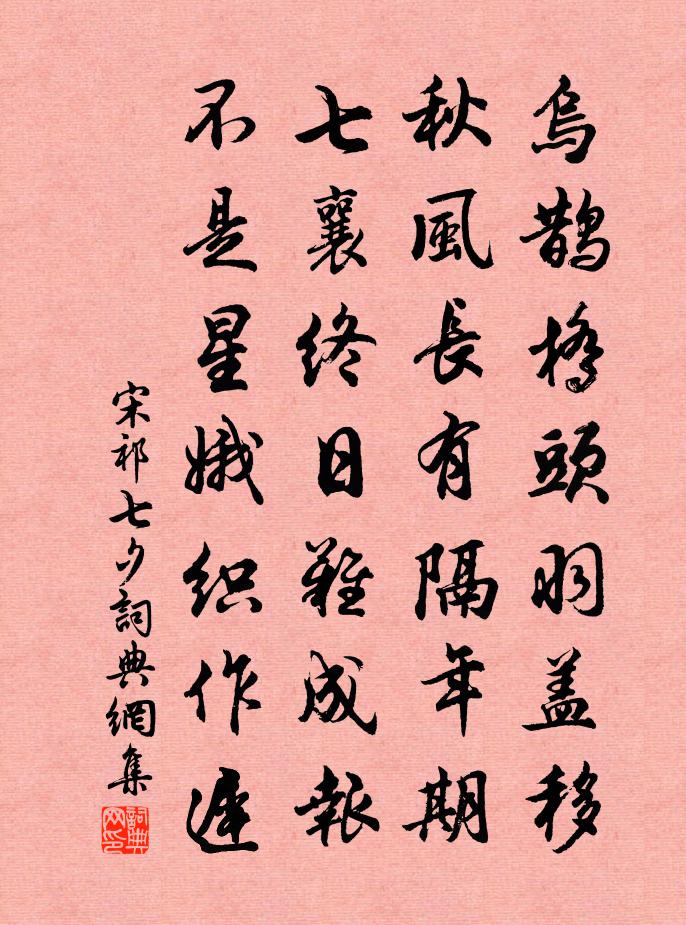 烏鵲橋頭羽盖移
秋風長有隔年期
七襄终日難成報
不是星娥织作遲
宋祁七夕詞典網集
詞典网印